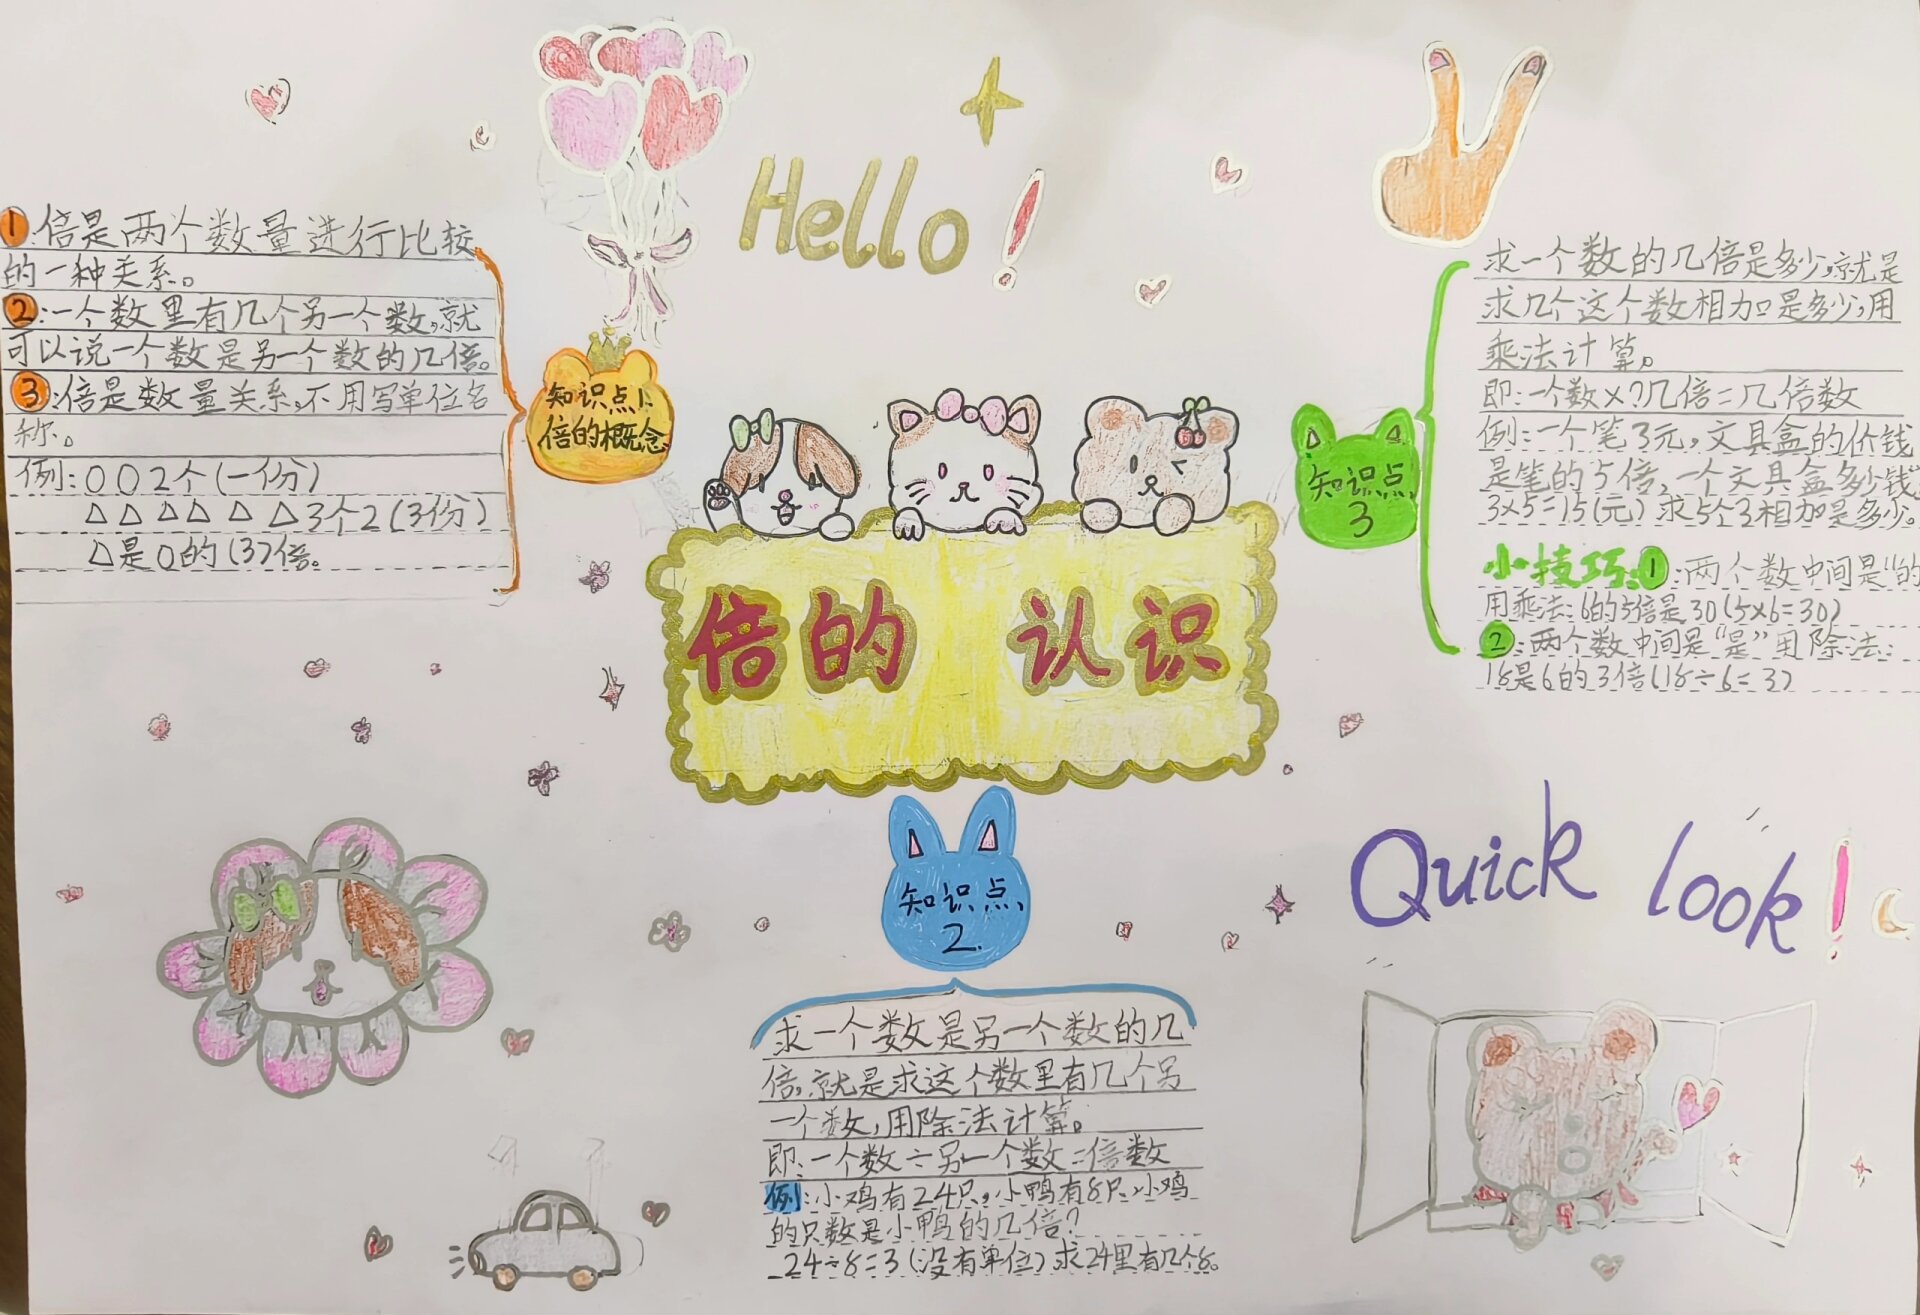 Hello!
①:倍是两个数量进行比较
的一种关系。
②:一个数里有几个另一个数,就
可以说一个数是另一个数的几倍。
③:倍是数量关系,不用写单位名
称。
例:〇〇2个(一份)
△△△△△△3个2(3份)
△是〇的(3)倍。
知识点1:
倍的概念
倍的 认识
知识点
3
求一个数的几倍是多少,就是
求几个这个数相加是多少,用
乘法计算。
即:一个数×?几倍=几倍数
例:一个笔3元,文具盒的价钱
是笔的5倍,一个文具盒多少钱
3×5=15(元) 求5个3相加是多少。
小技巧:①:两个数中间是“的
用乘法:6的5倍是30(5×6=30)
②:两个数中间是“是”用除法:
18是6的3倍(18÷6=3)
知识点
2
求一个数是另一个数的几
倍,就是求这个数里有几个另
一个数,用除法计算。
即:一个数÷另一个数=倍数
例:小鸡有24只,小鸭有8只,小鸡
的只数是小鸭的几倍?
24÷8=3(没有单位)求24里有几个8。
Quick look!